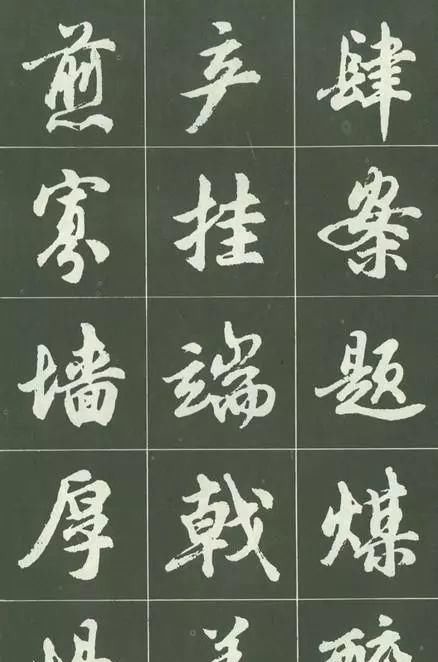 肆案题煤
产挂端戟
煎寡墙厚